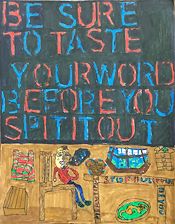 BE SURE
TO TASTE
YOUR WORD
BEFORE YOU
SPIT IT OUT